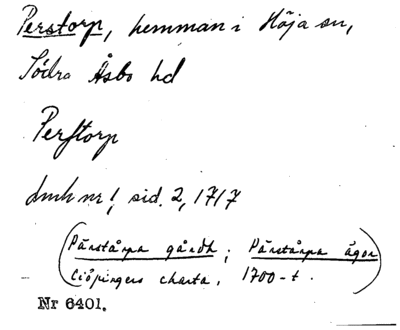 Perstorp, hemman i Höja sn,
Södra Åsbo hd
Perstorp
Lmh nr 1, sid. 2, 1717
(Pärstårpa gårdh; Pärstårpa ägor
Ciöpingers charta, 1700-t.)
Nr 6401.